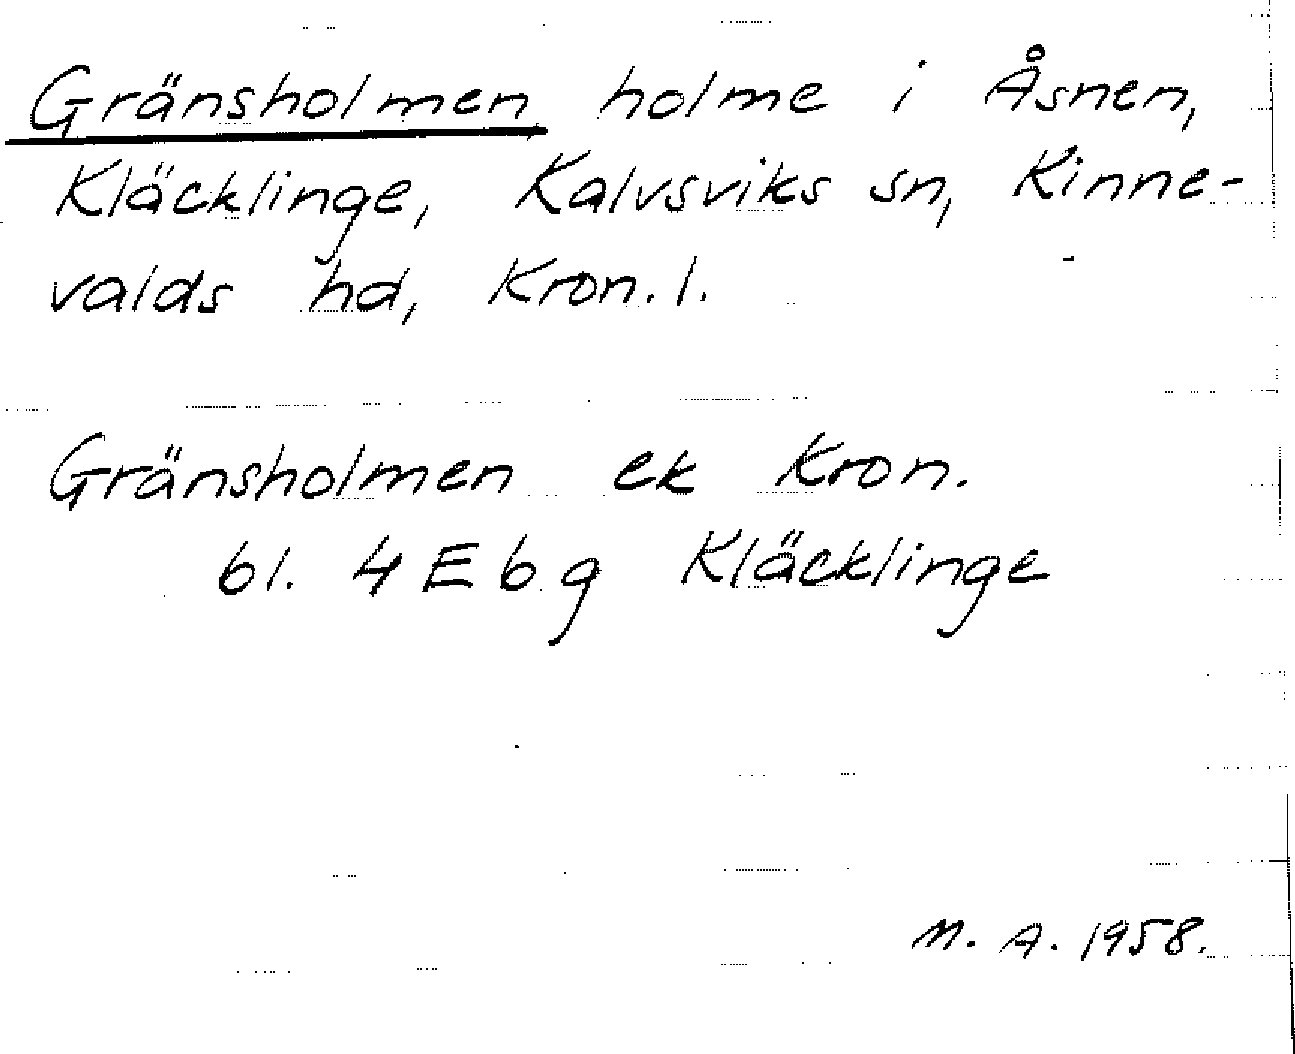 Gränsholmen holme i Åsnen,
Kläcklinge, Kalvsviks sn, Kinne-
valds hd, Kron. l.
Gränsholmen ek Kron.
bl. 4 E b g Kläcklinge
M. A. 1958.